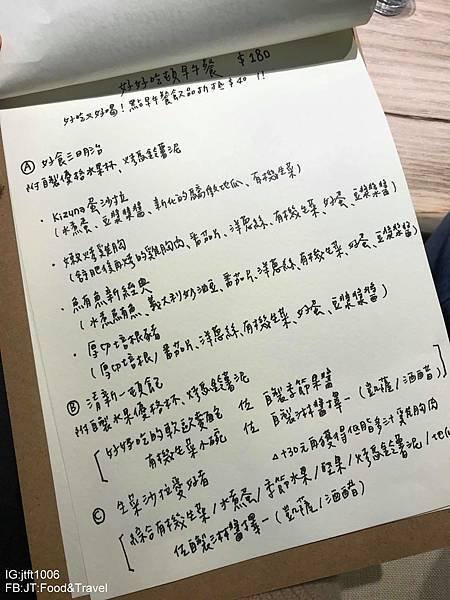 好好吃頓早午餐 $180
好吃又好喝！點早午餐飲品折抵$40！！
Ⓐ 好食三明治
附自製優格水果杯、烤馬鈴薯泥
・Kizuna蛋沙拉
(水煮蛋、豆漿漿醬、新化的地瓜、有機生菜)
・嫩烤雞胸
(舒肥後再烤的雞胸肉、番茄片、洋蔥絲、有機生菜、好蛋、豆漿漿醬)
・鮪魚新經典
(水煮鮪魚、義大利奶油瓜、番茄片、洋蔥絲、有機生菜、好蛋、豆漿漿醬)
・厚切培根豬
(厚切培根、番茄片、洋蔥絲、有機生菜、好蛋、豆漿漿醬)
Ⓑ 清新一頓飽
附自製水果優格杯、烤馬鈴薯泥
[好好吃的軟歐麵包 佐 自製季節果醬
有機生菜小碗 佐 自製淋醬擇一(凱薩/油醋)]
△+30元再獲得低脂多汁雞胸肉
Ⓒ 生菜沙拉愛好者
[綜合有機生菜/水煮蛋/季節水果/堅果/烤馬鈴薯泥/
佐自製淋醬擇一(凱薩/油醋)
IG:jtft1006
FB:JT:Food&Travel